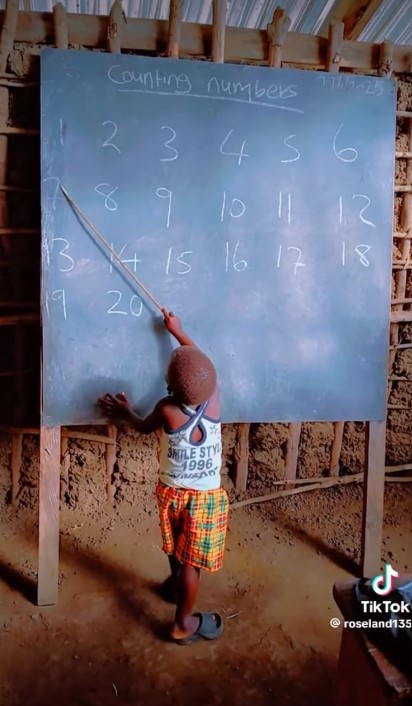 Counting numbers
1 2 3 4 5 6
7 8 9 10 11 12
13 14 15 16 17 18
19 20
STYLE
1996
TikTok
@roseland135